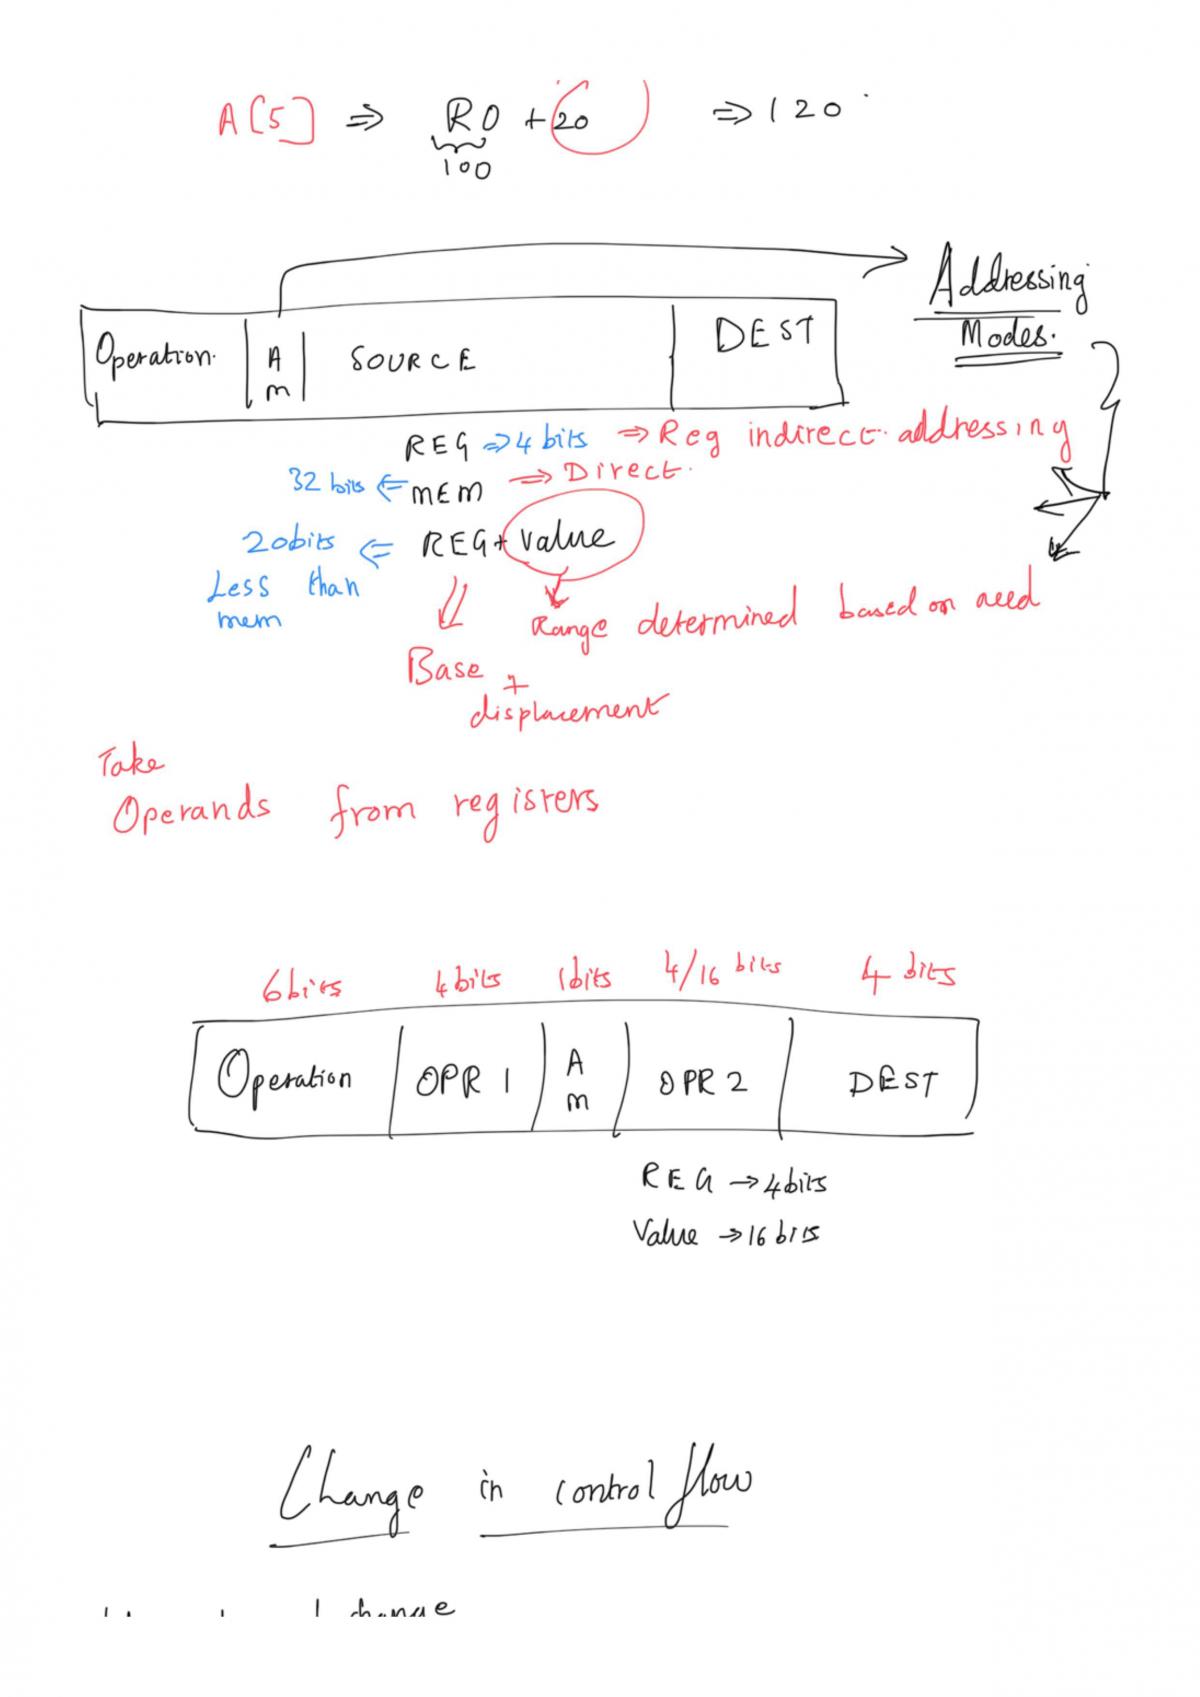 A[5] ⇒ R0 + 20 ⇒ 120
100
Addressing
Modes.
Operation. AM SOURCE DEST
REG ⇒ 4 bits ⇒ Reg indirect addressing
32 bits ⇐ MEM ⇒ Direct.
20bits ⇐ REG + value
Less than
mem
Range determined based on need
Base +
displacement
Take
Operands from registers
6bits 4bits 1bits 4/16 bits 4 bits
Operation OPR 1 AM OPR 2 DEST
REG → 4bits
Value → 16 bits
Change in control flow
change